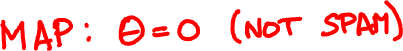 MAP: θ=0 (NOT SPAM)